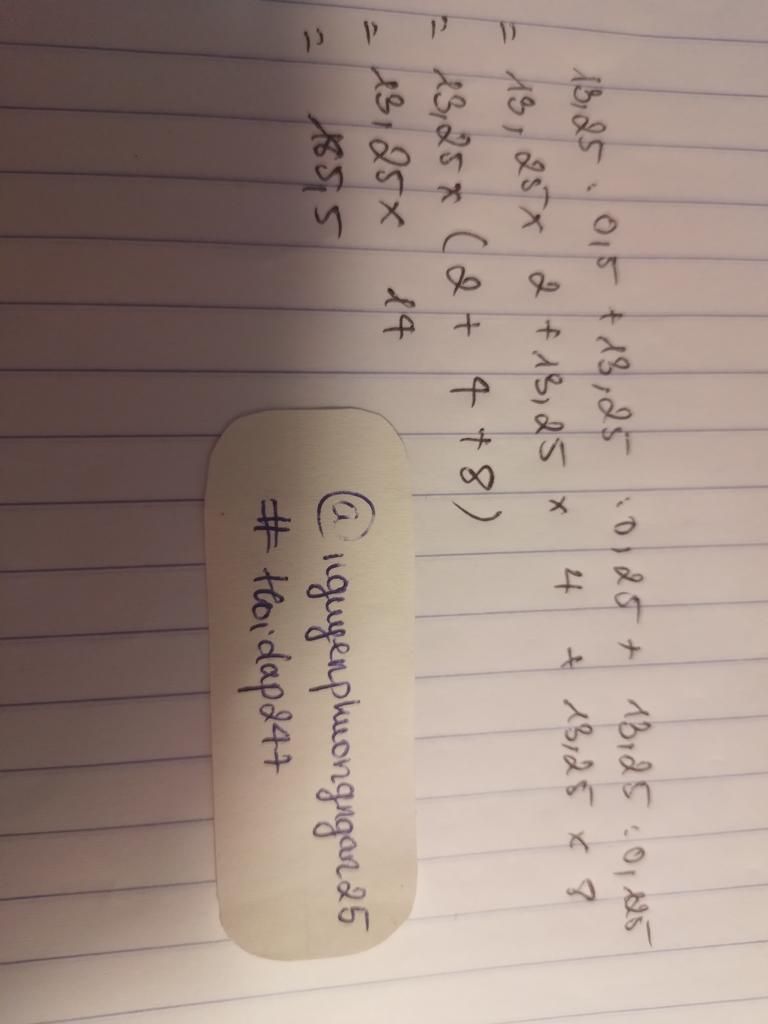 13,25 : 0,5 + 13,25 : 0,25 + 13,25 : 0,125
= 13,25 x 2 + 13,25 x 4 + 13,25 x 8
= 13,25 x (2 + 4 + 8)
= 13,25 x 14
= 185,5
@nguyenphuongngan25
#Hoidap247